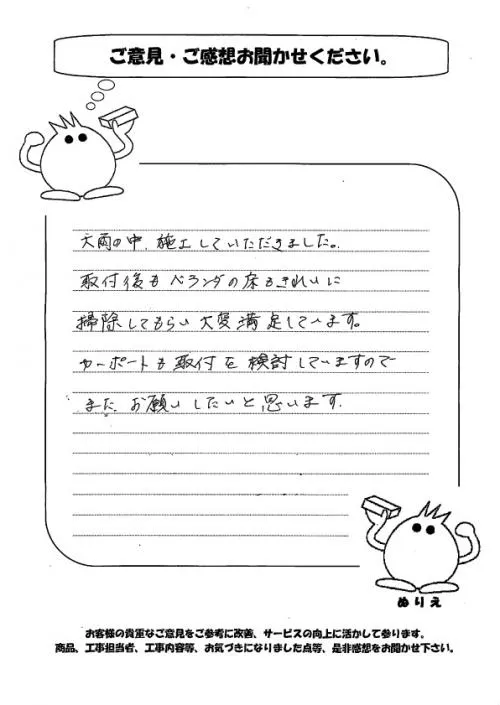 ご意見・ご感想お聞かせください。
大雨の中、施工していただきました。
取付後もベランダの床もきれいに
掃除してもらい大変満足しています。
カーポートも取付を検討していますので
また、お願いしたいと思います。
ぬりえ
お客様の貴重なご意見をご参考に改善、サービスの向上に活かして参ります。
商品、工事担当者、工事内容等、お気づきになりました点等、是非感想をお聞かせ下さい。